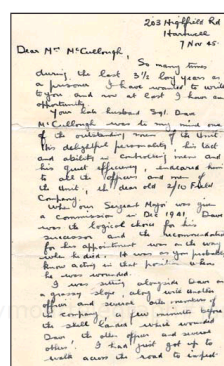 203 Highfield Rd
Hartwell
7 Nov 45.
Dear Mrs McCullough,
So many times
during the last 3½ long years as
a prisoner I have wanted to write
to you and now at last I have an
opportunity.
Your late husband Sgt. Dave
McCullough was to my mind one
of the outstanding men of the Unit
His delightful personality, his tact
and ability in controlling men and
his quiet efficiency endeared him
to all the officers and men of
the Unit, the dear old 2/10 Field
Company.
When our Sergeant Major was given
a commission in Dec 1941, Dave
was the logical choice for his
successor and the recommendation
for his appointment was on the way
when he died. It was as you probably
know acting in that position when
he was wounded.
I was sitting alongside Dave on
a grassy slope along with another
officer and several other members of
the company, a few minutes before
the shell landed which wounded
Dave the other officer and several
others. I had just got up to
walk across the road to inspect